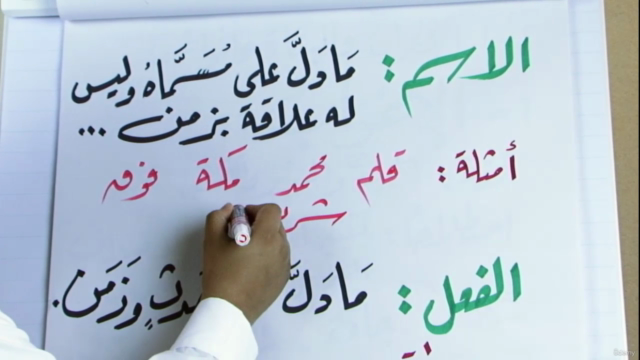 الاسم : مَا دَلَّ على مُسَمَّاهُ وليس
له علاقة بزمن ...
أمثلة : قلم محمد مَكة فوق
الفعل : مَا دَلَّ وَزَمَن .